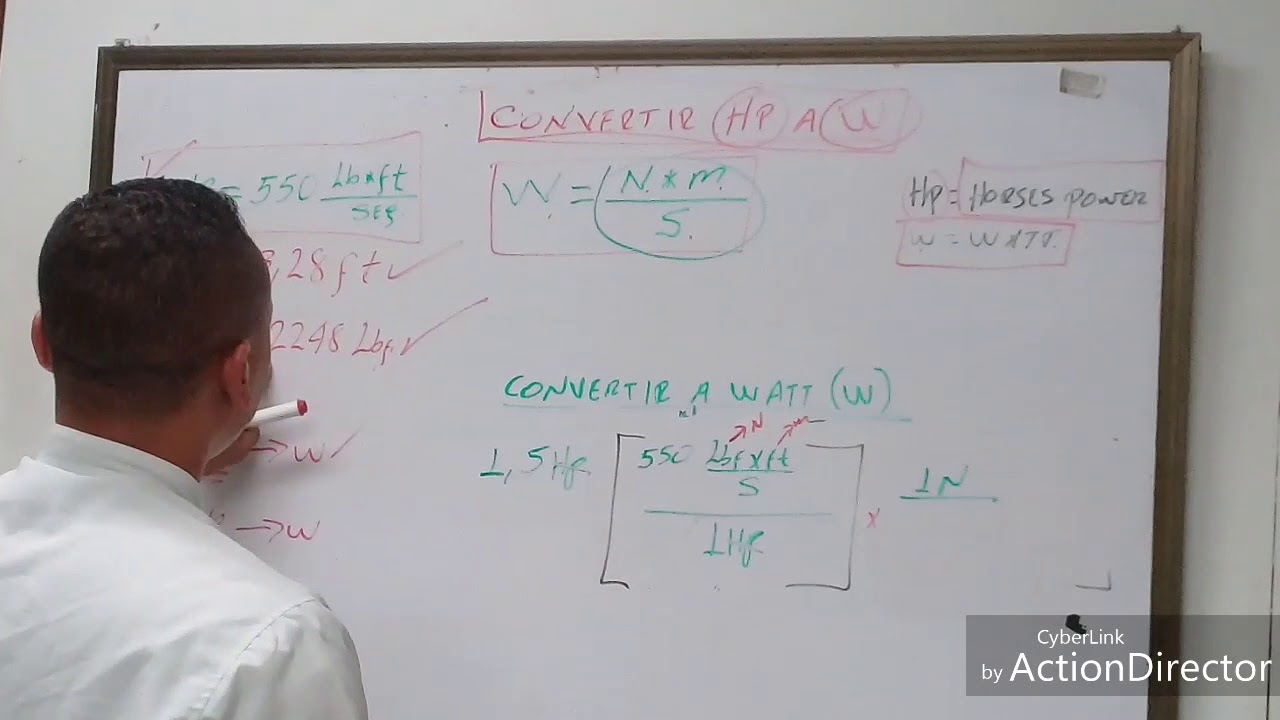 CONVERTIR HP A W
= 550 Lb*ft / SEG
W = N * m / S.
HP = HORSES POWER
W = WATT.
,28 ft
2248 Lbf
CONVERTIR A WATT (W)
→ N → m
1,5 HP [ 550 Lbf x ft / S / 1 HP ] x 1N
→ W
→ W
CyberLink
by ActionDirector